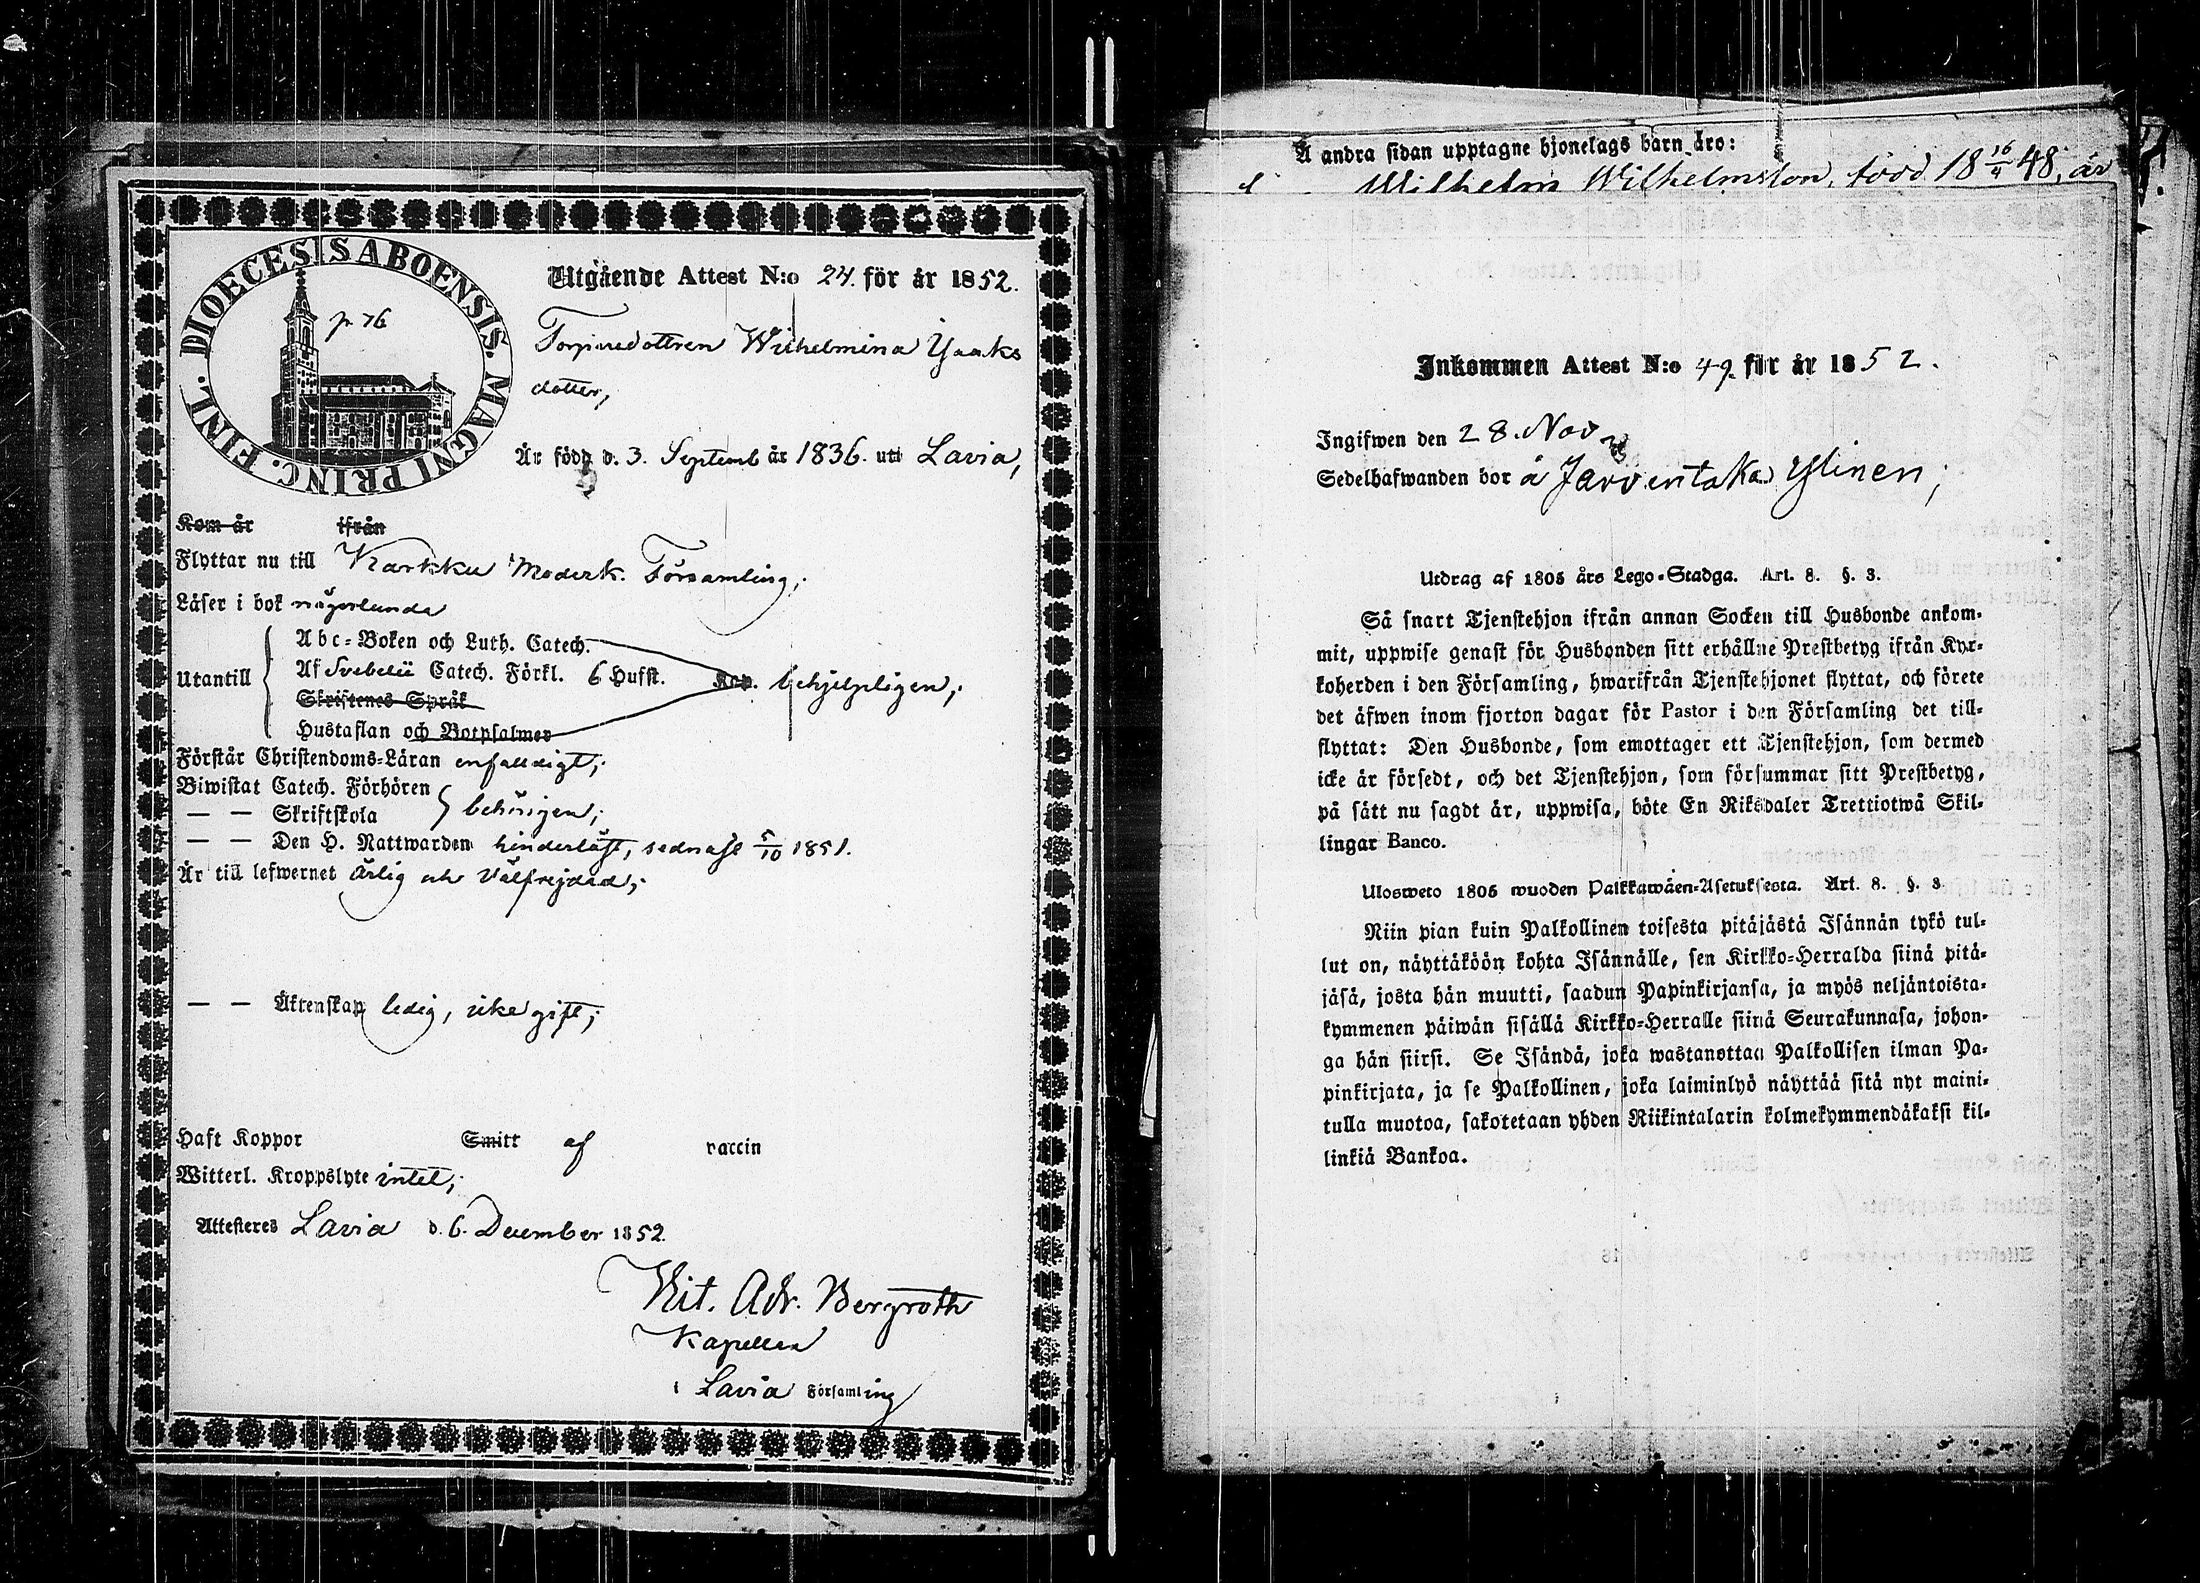 DIOECESIS ABOENSIS. MAGNI PRINC. FINL.
p. 76
Utgående Attest N:o 24. för år 1852.
Torparedottren Wilhelmina Isaks
dotter,
Är född d. 3. Septemb år 1836. uti Lavia,
Kom år ifrån
Flyttar nu till Karkku Moderk. Församling;
Läser i bok någorlunda
Utantill
Abc-Boken och Luth. Catech.
Af Svebelii Catech. Förkl. 6 Hufst. Kap. behjelpligen;
Skriftenes Språk
Hustaflan och Botpsalmer
Förstår Christendoms-Läran enfaldigt;
Biwistat Catech. Förhören
— — Skriftskola behörigen;
— — Den H. Nattwarden hinderlöst, sednast 5/10 1851.
Är till lefwernet ärlig och välfrejdad;
— — Äktenskap ledig, icke gift;
Haft Koppor Smitt af vaccin
Witterl. Kroppslyte intet;
Attesteres Lavia d. 6. December 1852.
Kit. Adr. Bergroth
Kapellan
i Lavia Församling
Å andra sidan upptagne hjonelags barn äro:
Wilhelm Wilhelmsson, född 18 16/4 48, är
Inkommen Attest N:o 49. för år 1852.
Ingifwen den 28. Nov
Sedelhafwanden bor å Järventaka Ylinen;
Utdrag af 1805 års Lego-Stadga. Art. 8. §. 3.
Så snart Tjenstehjon ifrån annan Socken till Husbonde ankom-
mit, uppwise genast för Husbonden sitt erhållne Prestbetyg ifrån Kyr-
koherden i den Församling, hwarifrån Tjenstehjonet flyttat, och förete
det äfwen inom fjorton dagar för Pastor i den Församling det till-
flyttat: Den Husbonde, som emottager ett Tjenstehjon, som dermed
icke är försedt, och det Tjenstehjon, som försummar sitt Prestbetyg,
på sätt nu sagdt är, uppwisa, böte En Riksdaler Trettiotwå Skil-
lingar Banco.
Ulosweto 1805 wuoden Palkkawäen-Asetuksesta. Art. 8. §. 3
Niin pian kuin Palkollinen toisesta pitäjästä Isännän tykö tul-
lut on, näyttäköön kohta Isännälle, sen Kirkko-Herralda siinä pitä-
jäsä, josta hän muutti, saadun Papinkirjansa, ja myös neljäntoista-
kymmenen päiwän sisällä Kirkko-Herralle siinä Seurakunnasa, johon-
ga hän siirsi. Se Isändä, joka wastanottaa Palkollisen ilman Pa-
pinkirjata, ja se Palkollinen, joka laiminlyö näyttää sitä nyt maini-
tulla muotoa, sakotetaan yhden Riikintalarin kolmekymmendäkaksi kil-
linkiä Bankoa.